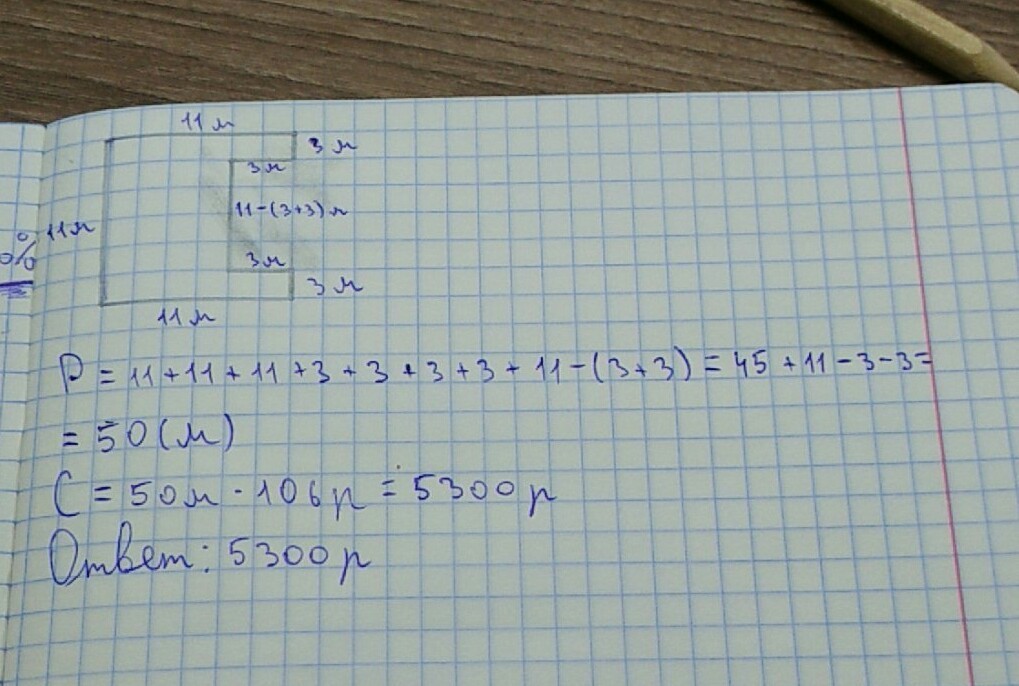 11 м
3 м
3м
11-(3+3)м
11м
%
3м
3 м
11 м
P = 11 + 11 + 11 + 3 + 3 + 3 + 3 + 11 - (3 + 3) = 45 + 11 - 3 - 3 =
= 50 (м)
C = 50м · 106р = 5300р
Ответ: 5300р